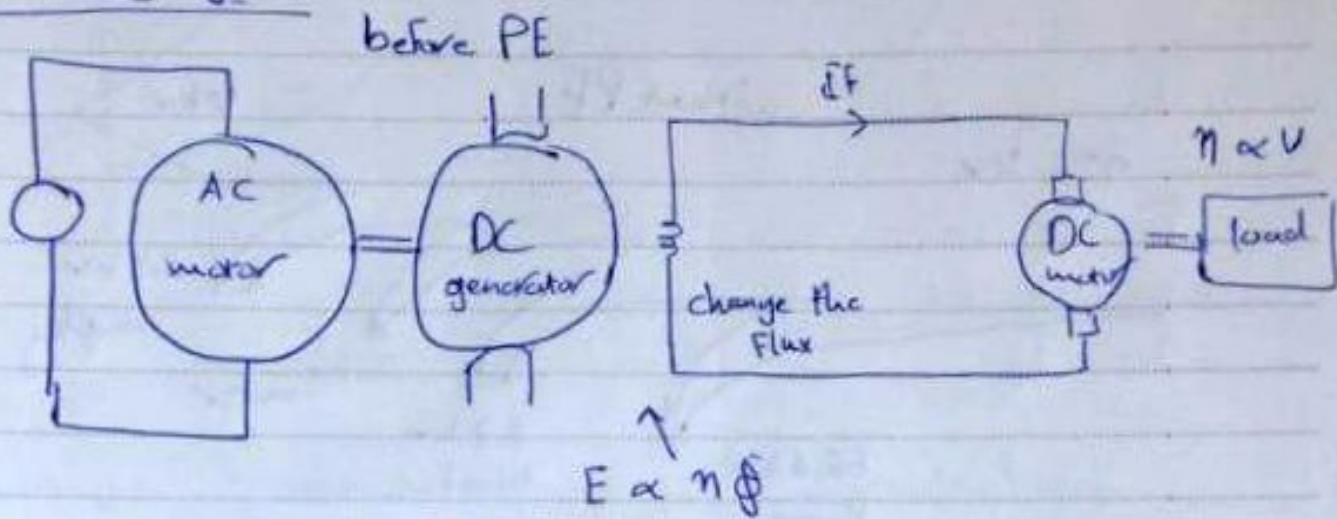 before PE
AC
motor
DC
generator
If
change the
Flux
DC
motor
η ∝ V
load
E ∝ n ϕ